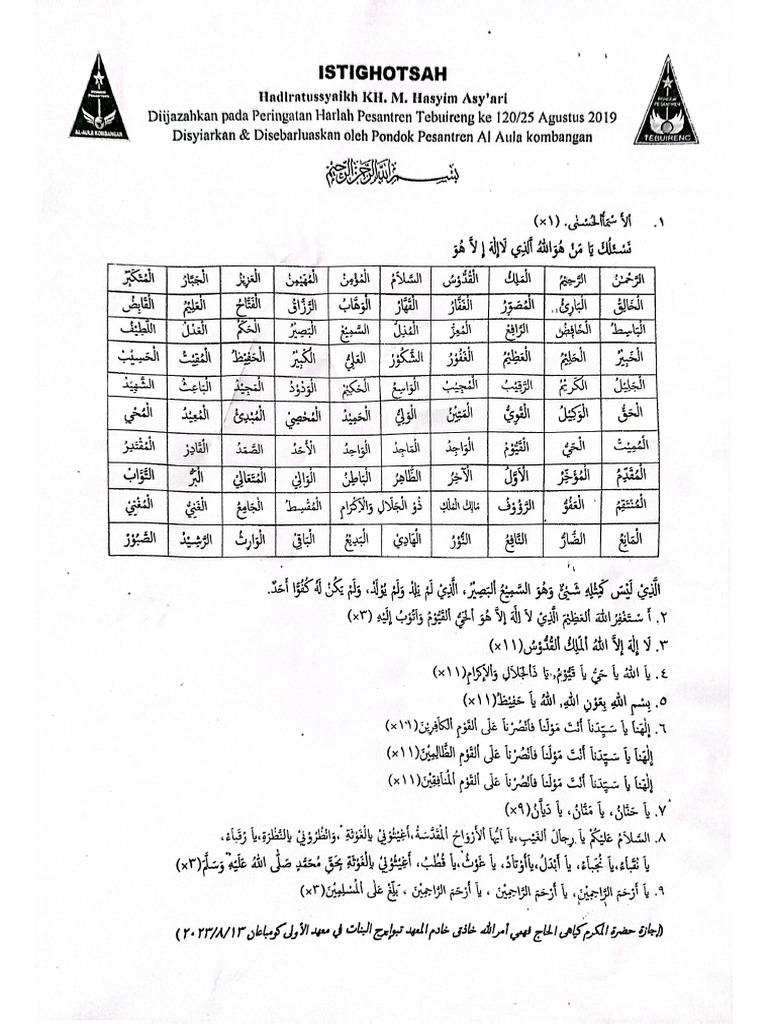 ISTIGHOTSAH
Hadlratussyaikh KH. M. Hasyim Asy'ari
Diijazahkan pada Peringatan Harlah Pesantren Tebuireng ke 120/25 Agustus 2019
Disyiarkan & Disebarluaskan oleh Pondok Pesantren Al Aula kombangan
PONDOK PESANTREN
AL-AULA KOMBANGAN
PONDOK PESANTREN
TEBUIRENG
بِسْمِ اللهِ الرَّحْمٰنِ الرَّحِيْمِ
١. اَلأَسْمَآءُ الحُسْنٰى. (١×)
نَسْئَلُكَ يَا مَنْ هُوَ اللهُ الَّذِي لَا إِلٰهَ إِلاَّ هُوَ
الرَّحْمٰنُ الرَّحِيْمُ الْمَلِكُ الْقُدُّوْسُ السَّلَامُ الْمُؤْمِنُ الْمُهَيْمِنُ الْعَزِيْزُ الْجَبَّارُ الْمُتَكَبِّرُ
الْخَالِقُ الْبَارِئُ الْمُصَوِّرُ الْغَفَّارُ الْقَهَّارُ الْوَهَّابُ الرَّزَّاقُ الْفَتَّاحُ الْعَلِيْمُ الْقَابِضُ
الْبَاسِطُ الْخَافِضُ الرَّافِعُ الْمُعِزُّ الْمُذِلُّ السَّمِيْعُ الْبَصِيْرُ الْحَكَمُ الْعَدْلُ اللَّطِيْفُ
الْخَبِيْرُ الْحَلِيْمُ الْعَظِيْمُ الْغَفُوْرُ الشَّكُوْرُ الْعَلِيُّ الْكَبِيْرُ الْحَفِيْظُ الْمُقِيْتُ الْحَسِيْبُ
الْجَلِيْلُ الْكَرِيْمُ الرَّقِيْبُ الْمُجِيْبُ الْوَاسِعُ الْحَكِيْمُ الْوَدُوْدُ الْمَجِيْدُ الْبَاعِثُ الشَّهِيْدُ
الْحَقُّ الْوَكِيْلُ الْقَوِيُّ الْمَتِيْنُ الْوَلِيُّ الْحَمِيْدُ الْمُحْصِيْ الْمُبْدِئُ الْمُعِيْدُ الْمُحْيِ
الْمُمِيْتُ الْحَيُّ الْقَيُّوْمُ الْوَاجِدُ الْمَاجِدُ الْوَاحِدُ الْأَحَدُ الصَّمَدُ الْقَادِرُ الْمُقْتَدِرُ
الْمُقَدِّمُ الْمُؤَخِّرُ الْأَوَّلُ الْآخِرُ الظَّاهِرُ الْبَاطِنُ الْوَالِيْ الْمُتَعَالِيْ الْبَرُّ التَّوَّابُ
الْمُنْتَقِمُ الْعَفُوُّ الرَّؤُوْفُ مَالِكُ الْمُلْكِ ذُو الْجَلَالِ وَالْإِكْرَامِ الْمُقْسِطُ الْجَامِعُ الْغَنِيُّ الْمُغْنِيْ
الْمَانِعُ الضَّارُّ النَّافِعُ النُّوْرُ الْهَادِيْ الْبَدِيْعُ الْبَاقِيْ الْوَارِثُ الرَّشِيْدُ الصَّبُوْرُ
الَّذِيْ لَيْسَ كَمِثْلِهِ شَيْئٌ وَهُوَ السَّمِيْعُ الْبَصِيْرُ، الَّذِيْ لَمْ يَلِدْ وَلَمْ يُوْلَدْ، وَلَمْ يَكُنْ لَهُ كُفُوًا أَحَدٌ.
٢. أَسْتَغْفِرُ اللهَ الْعَظِيْمَ الَّذِيْ لَا إِلٰهَ إِلاَّ هُوَ الْحَيُّ الْقَيُّوْمُ وَأَتُوْبُ إِلَيْهِ (٣×)
٣. لَا إِلٰهَ إِلاَّ اللهُ الْمَلِكُ الْقُدُّوْسُ (١١×)
٤. يَا اللهُ يَا حَيُّ يَا قَيُّوْمُ، يَا ذَالْجَلَالِ وَالْإِكْرَامِ (١١×)
٥. بِسْمِ اللهِ بِعَوْنِ اللهِ، اللهُ يَا حَفِيْظُ (١١×)
٦. إِلٰهَنَا يَا سَيِّدَنَا أَنْتَ مَوْلَنَا فَانْصُرْنَا عَلَى الْقَوْمِ الْكَافِرِيْنَ (١٦×)
إِلٰهَنَا يَا سَيِّدَنَا أَنْتَ مَوْلَنَا فَانْصُرْنَا عَلَى الْقَوْمِ الظَّالِمِيْنَ (١١×)
إِلٰهَنَا يَا سَيِّدَنَا أَنْتَ مَوْلَنَا فَانْصُرْنَا عَلَى الْقَوْمِ الْمُنَافِقِيْنَ (١١×)
٧. يَا حَنَّانُ، يَا مَنَّانُ، يَا دَيَّانُ (٩×)
٨. السَّلَامُ عَلَيْكُمْ يَا رِجَالَ الْغَيْبِ، يَا أَيُّهَا الْأَرْوَاحُ الْمُقَدَّسَةُ، أَغِيْثُوْنِيْ بِالْغَوْثَةِ، وَانْظُرُوْنِيْ بِالنَّظْرَةِ، يَا رُقَبَاءُ،
يَا نُقَبَاءُ، يَا نُجَبَاءُ، يَا أَبْدَلُ، يَا أَوْتَادُ، يَا غَوْثُ، يَا قُطْبُ، أَغِيْثُوْنِيْ بِالْغَوْثَةِ بِحَقِّ مُحَمَّدٍ صَلَّى اللهُ عَلَيْهِ وَسَلَّمَ (٣×)
٩. يَا أَرْحَمَ الرَّاحِمِيْنَ، يَا أَرْحَمَ الرَّاحِمِيْنَ، يَا أَرْحَمَ الرَّاحِمِيْنَ، بَلِّغْ عَلَى الْمُسْلِمِيْنَ (٣×)
(إجازة حضرة المكرم كياهي الحاج فهمي أمرالله خاذق خادم المعهد تبوايرج البنات في معهد الأولى كومباغان ٢٠٢٣/٨/١٣)